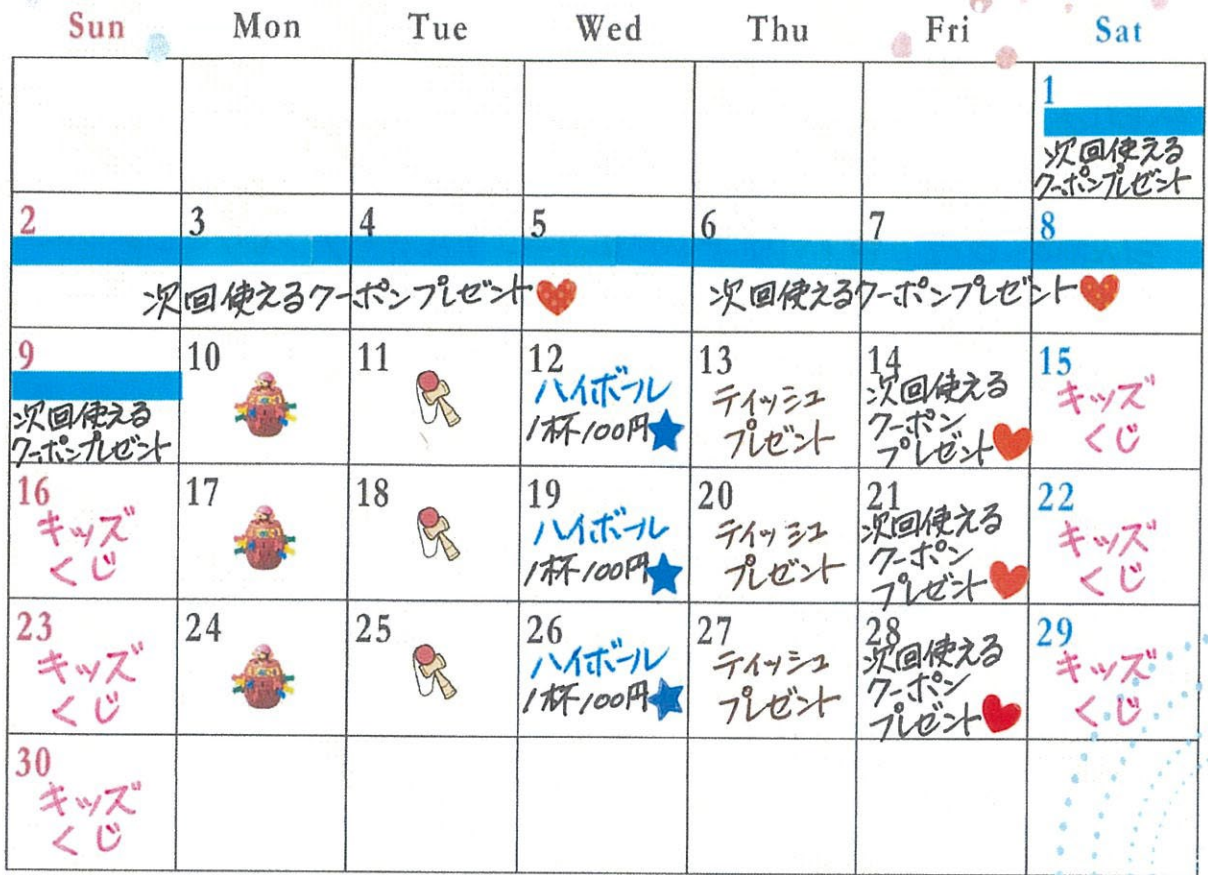 Sun Mon Tue Wed Thu Fri Sat
1
次回使える
クーポンプレゼント
2 3 4 5 6 7 8
次回使えるクーポンプレゼント 次回使えるクーポンプレゼント
9
次回使える
クーポンプレゼント
10
11
12
ハイボール
1杯100円
13
ティッシュ
プレゼント
14
次回使える
クーポン
プレゼント
15
キッズ
くじ
16
キッズ
くじ
17
18
19
ハイボール
1杯100円
20
ティッシュ
プレゼント
21
次回使える
クーポン
プレゼント
22
キッズ
くじ
23
キッズ
くじ
24
25
26
ハイボール
1杯100円
27
ティッシュ
プレゼント
28
次回使える
クーポン
プレゼント
29
キッズ
くじ
30
キッズ
くじ